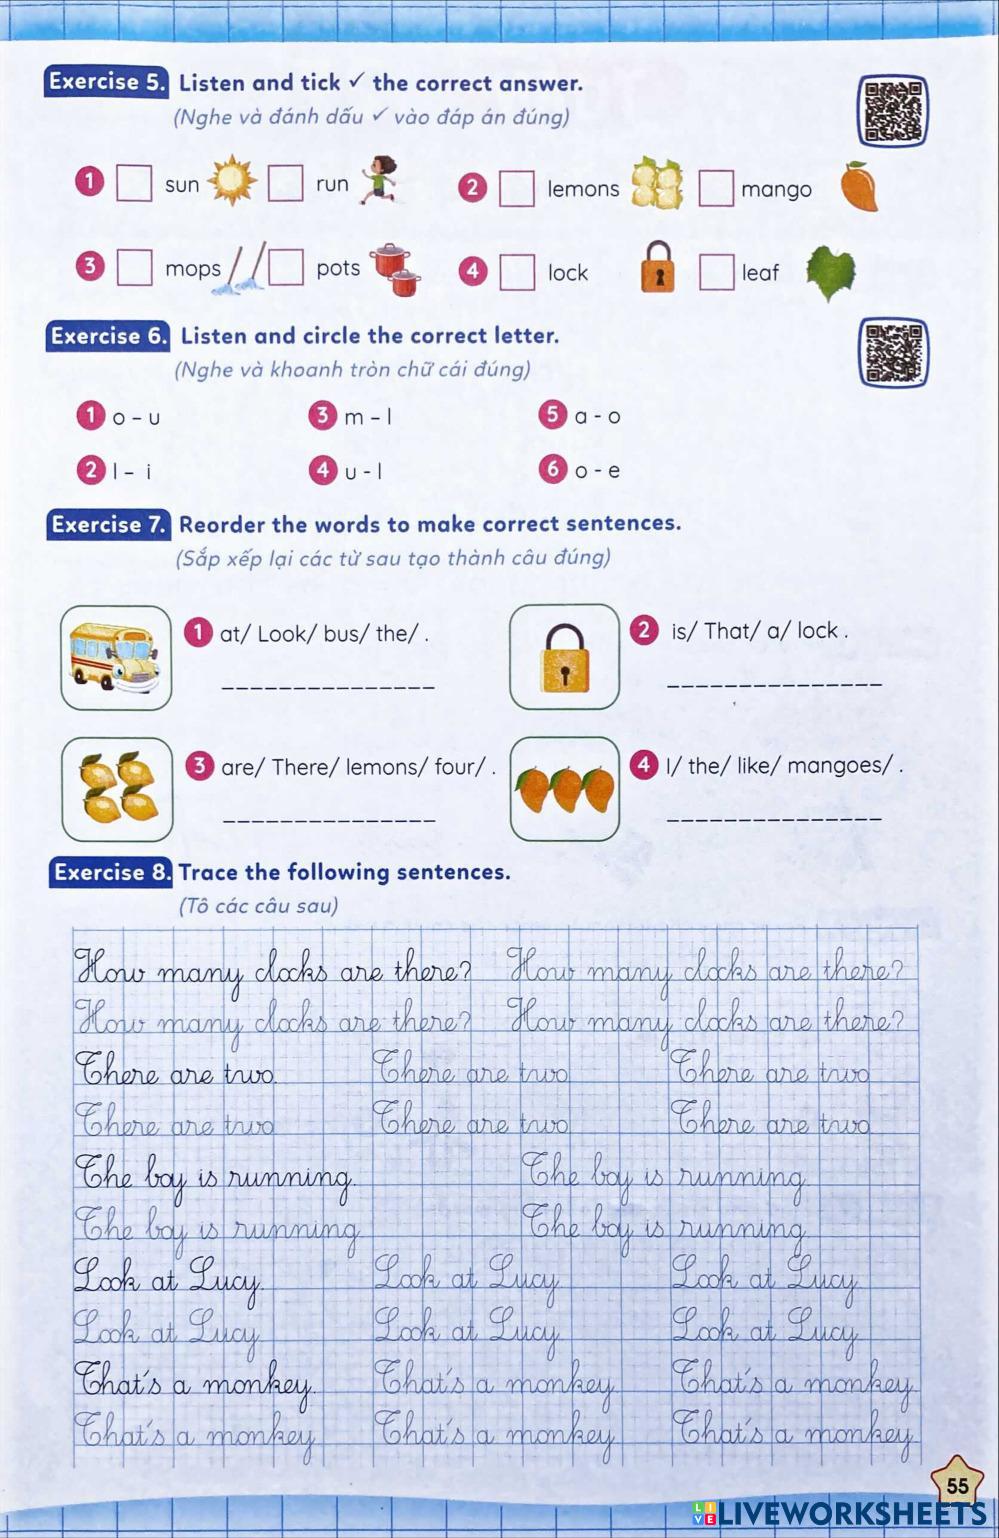 Exercise 5. Listen and tick ✓ the correct answer.
(Nghe và đánh dấu ✓ vào đáp án đúng)
1 sun run 2 lemons mango
3 mops pots 4 lock leaf
Exercise 6. Listen and circle the correct letter.
(Nghe và khoanh tròn chữ cái đúng)
1 o – u 3 m – l 5 a - o
2 l – i 4 u - l 6 o - e
Exercise 7. Reorder the words to make correct sentences.
(Sắp xếp lại các từ sau tạo thành câu đúng)
1 at/ Look/ bus/ the/ . 2 is/ That/ a/ lock .
3 are/ There/ lemons/ four/ . 4 I/ the/ like/ mangoes/ .
Exercise 8. Trace the following sentences.
(Tô các câu sau)
How many clocks are there? How many clocks are there?
How many clocks are there? How many clocks are there?
There are two. There are two There are two
There are two There are two There are two
The boy is running. The boy is running.
The boy is running The boy is running.
Look at Lucy. Look at Lucy Look at Lucy
Look at Lucy Look at Lucy Look at Lucy
That's a monkey. That's a monkey That's a monkey
That's a monkey That's a monkey That's a monkey
55
LIVE LIVEWORKSHEETS